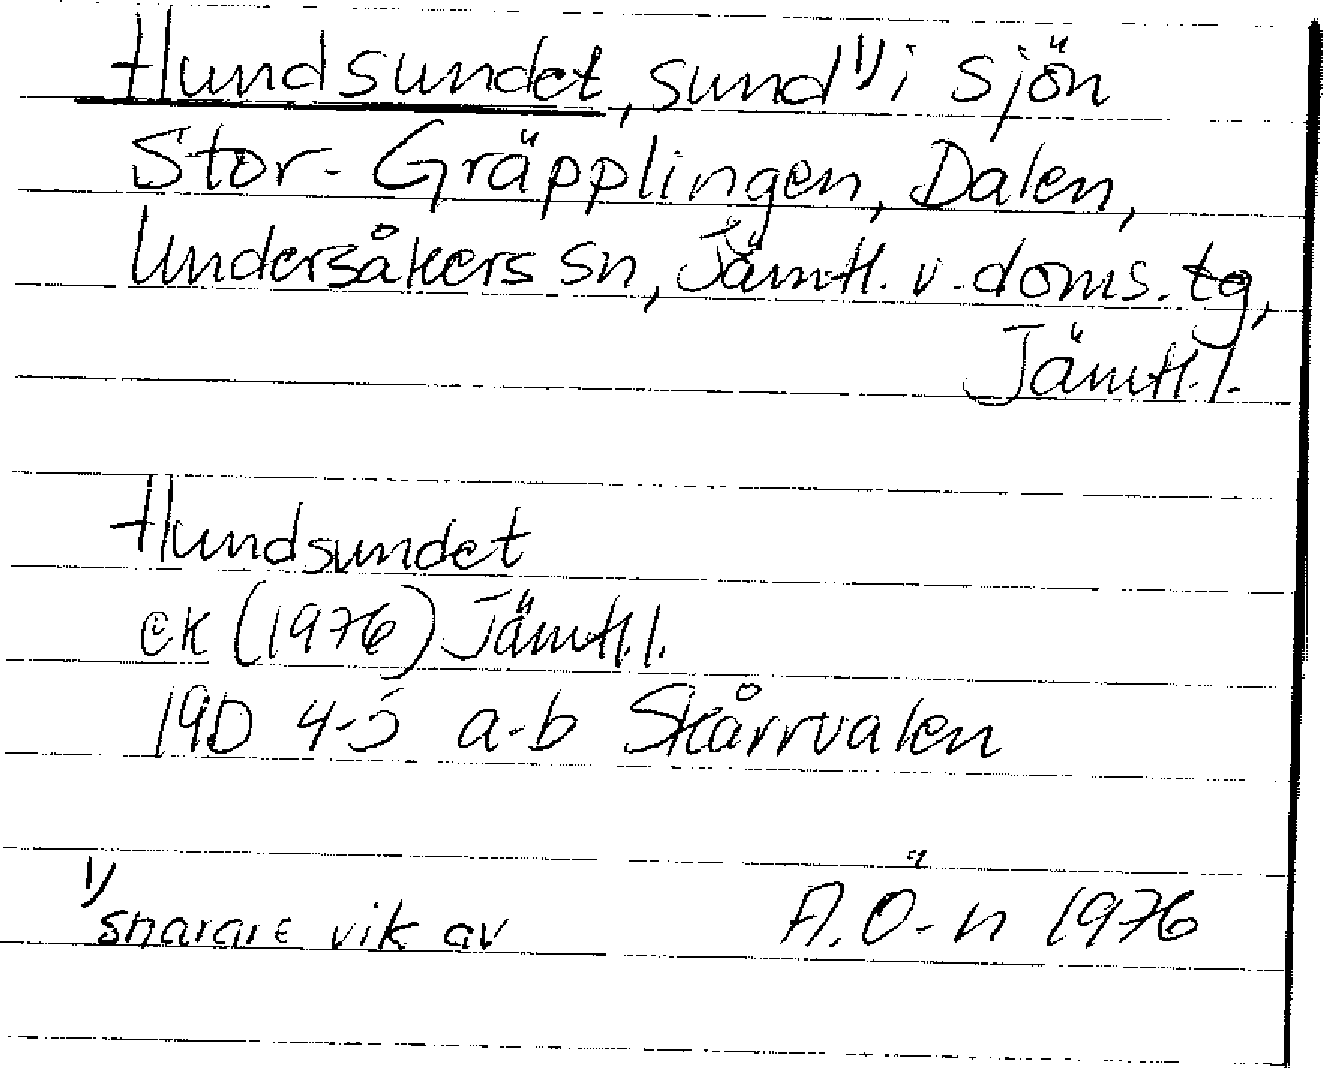 Hundsundet, sund 1) i sjön
Stor-Gräpplingen, Dalen,
Undersåkers sn, Jämtl. v. doms. tg,
Jämtl. l.
Hundsundet
ek (1976) Jämtl. l.
19D 4-5 a-b Skårrvalen
1) snarare vik av
A. Ö-n 1976